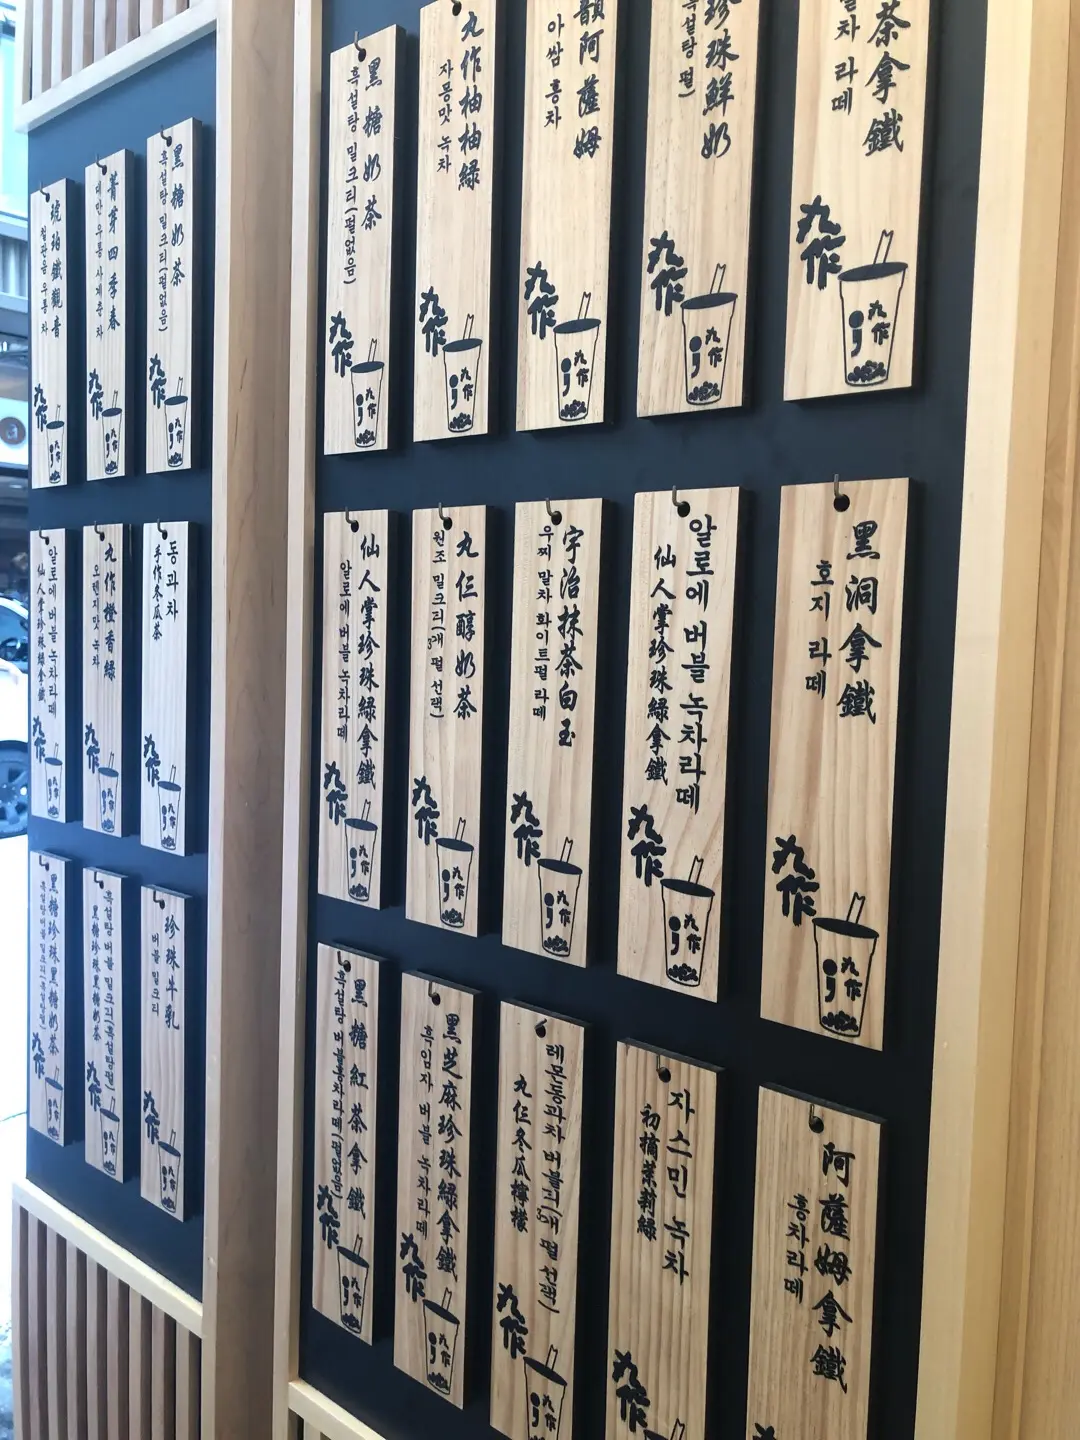 琥珀鐵觀音
철관음 우롱 차
九作
九作
菁芽四季春
대만 우롱 사계춘차
九作
九作
黑糖奶茶
흑설탕 밀크티(펄없음)
九作
九作
알로에 버블 녹차라떼
仙人掌珍珠綠拿鐵
九作
九作
九作橙香綠
오렌지맛 녹차
九作
九作
동과차
手作冬瓜茶
九作
九作
黑糖珍珠黑糖奶茶
九作
九作
흑설탕 버블 밀크티(흑설탕펄)
黑糖珍珠黑糖奶茶
九作
九作
珍珠牛乳
버블 밀크티
九作
九作
黑糖奶茶
흑설탕 밀크티(펄없음)
九作
九作
九作柚柚綠
자몽맛 녹차
九作
九作
韻阿薩姆
아쌈 홍차
九作
九作
珍珠鮮奶
흑설탕 펄)
九作
九作
茶拿鐵
말차 라떼
九作
九作
仙人掌珍珠綠拿鐵
알로에 버블 녹차라떼
九作
九作
九仨醇奶茶
원조 밀크티(3개 펄 선택)
九作
九作
宇治抹茶白玉
우찌 말차 화이트펄 라떼
九作
九作
알로에 버블 녹차라떼
仙人掌珍珠綠拿鐵
九作
九作
黑洞拿鐵
호지 라떼
九作
九作
黑糖紅茶拿鐵
흑설탕 버블홍차라떼(펄없음)
九作
九作
黑芝麻珍珠綠拿鐵
흑임자 버블 녹차라떼
九作
九作
레몬동과차 버블티(3개 펄 선택)
九仨冬瓜檸檬
九作
九作
자스민 녹차
初摘茉莉綠
九作
阿薩姆拿鐵
홍차라떼